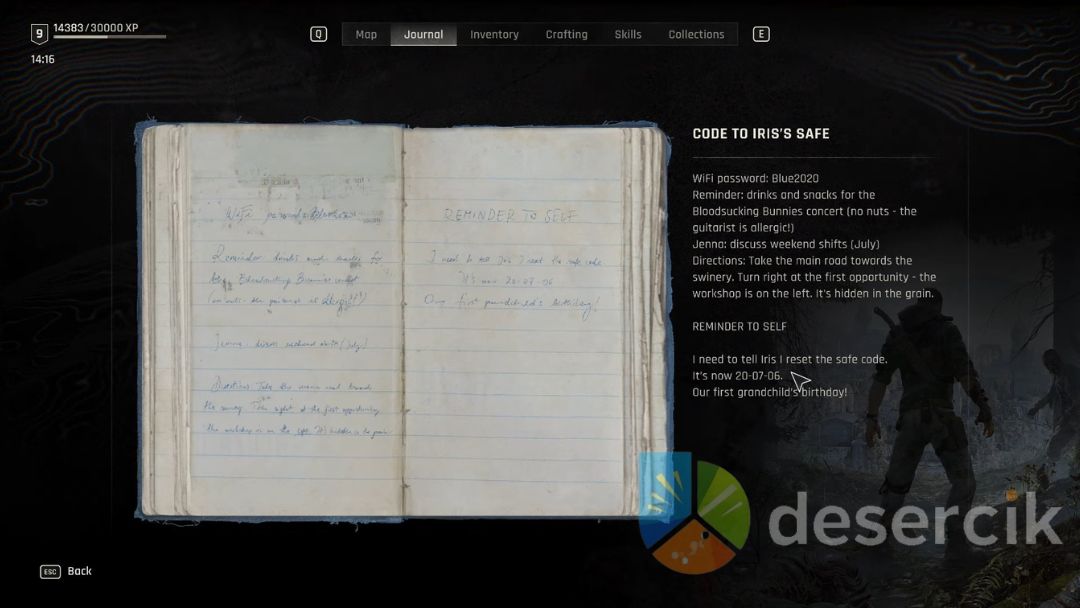 9 14383/30000 XP
14:16
Q Map Journal Inventory Crafting Skills Collections E
WiFi password: Blue2020
Reminder: drinks and snacks for
the Bloodsucking Bunnies concert
(no nuts - the guitarist is allergic!)
Jenna: discuss weekend shifts (July)
Directions: Take the main road towards
the swinery. Turn right at the first opportunity -
the workshop is on the left. It's hidden in the grain.
REMINDER TO SELF
I need to tell Iris I reset the safe code.
It's now 20-07-06
Our first grandchild's birthday!
CODE TO IRIS'S SAFE
WiFi password: Blue2020
Reminder: drinks and snacks for the
Bloodsucking Bunnies concert (no nuts - the
guitarist is allergic!)
Jenna: discuss weekend shifts (July)
Directions: Take the main road towards the
swinery. Turn right at the first opportunity - the
workshop is on the left. It's hidden in the grain.
REMINDER TO SELF
I need to tell Iris I reset the safe code.
It's now 20-07-06.
Our first grandchild's birthday!
desercik
ESC Back